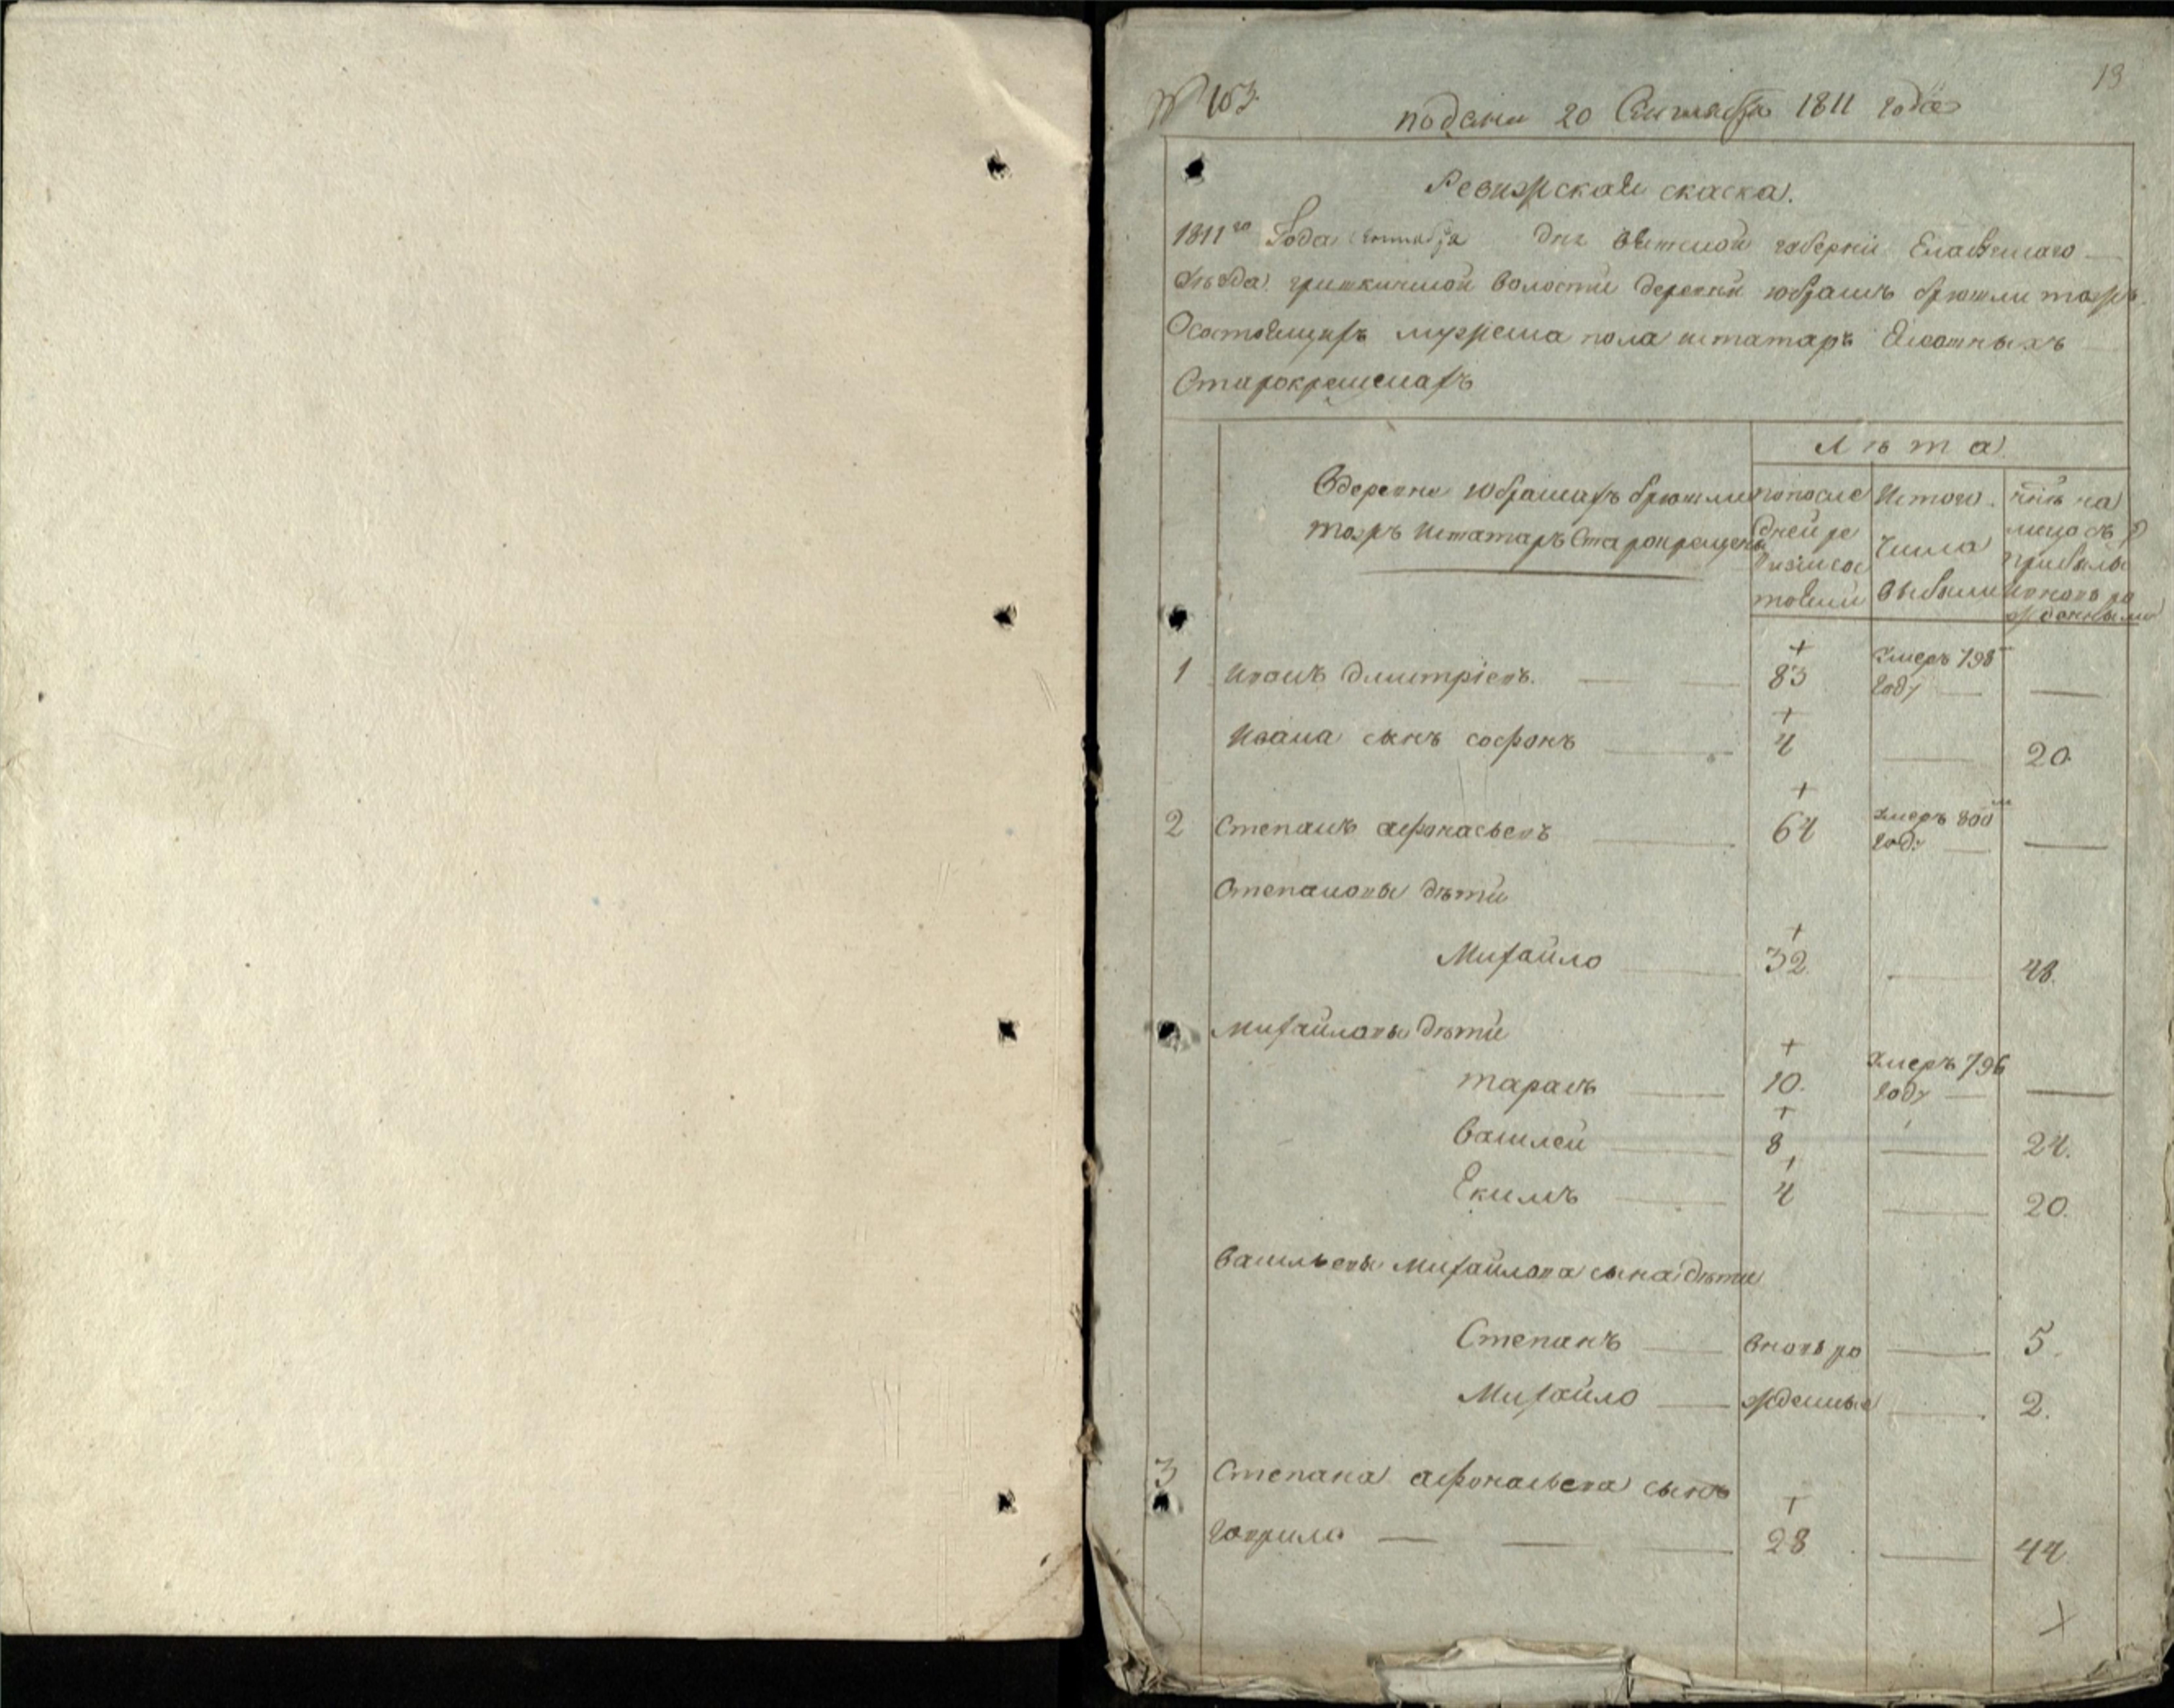 13
№ 103.
подана 20 Сентября 1811 года
Ревизская скаска.
1811го Года Сентября дня Вятской губернии Елабужскаго
уезда. волости деревни юбрашъ
Осостоящихъ мужеска пола изтатаръ Ясашныхъ
Старокрещенахъ
Лѣта
Вдеревне юбрашахъ
изтатаръ Старокрещенъ
попосле
дней ре
визiи сос
тояли
Изтого
Числа
выбыли
ныне на
лицо съ
прибылы
ивновь ро
жденными
1 иванъ дмитрiевъ. 83 умеръ 798
году
Ивана сынъ софонъ 4 20.
2 Степанъ афонасьевъ 64 умеръ 800
году
Степановы дѣти
Михайло 32. 48.
Михайловы дѣти
тарасъ 10. умеръ 796
году
Василей 8 24.
Екимъ 4 20.
Васильевы Михайлова сына дѣти
Степанъ вновь ро 5.
Михайло жденные 2.
3 Степана афонасьева сынъ
гаврило 28 44